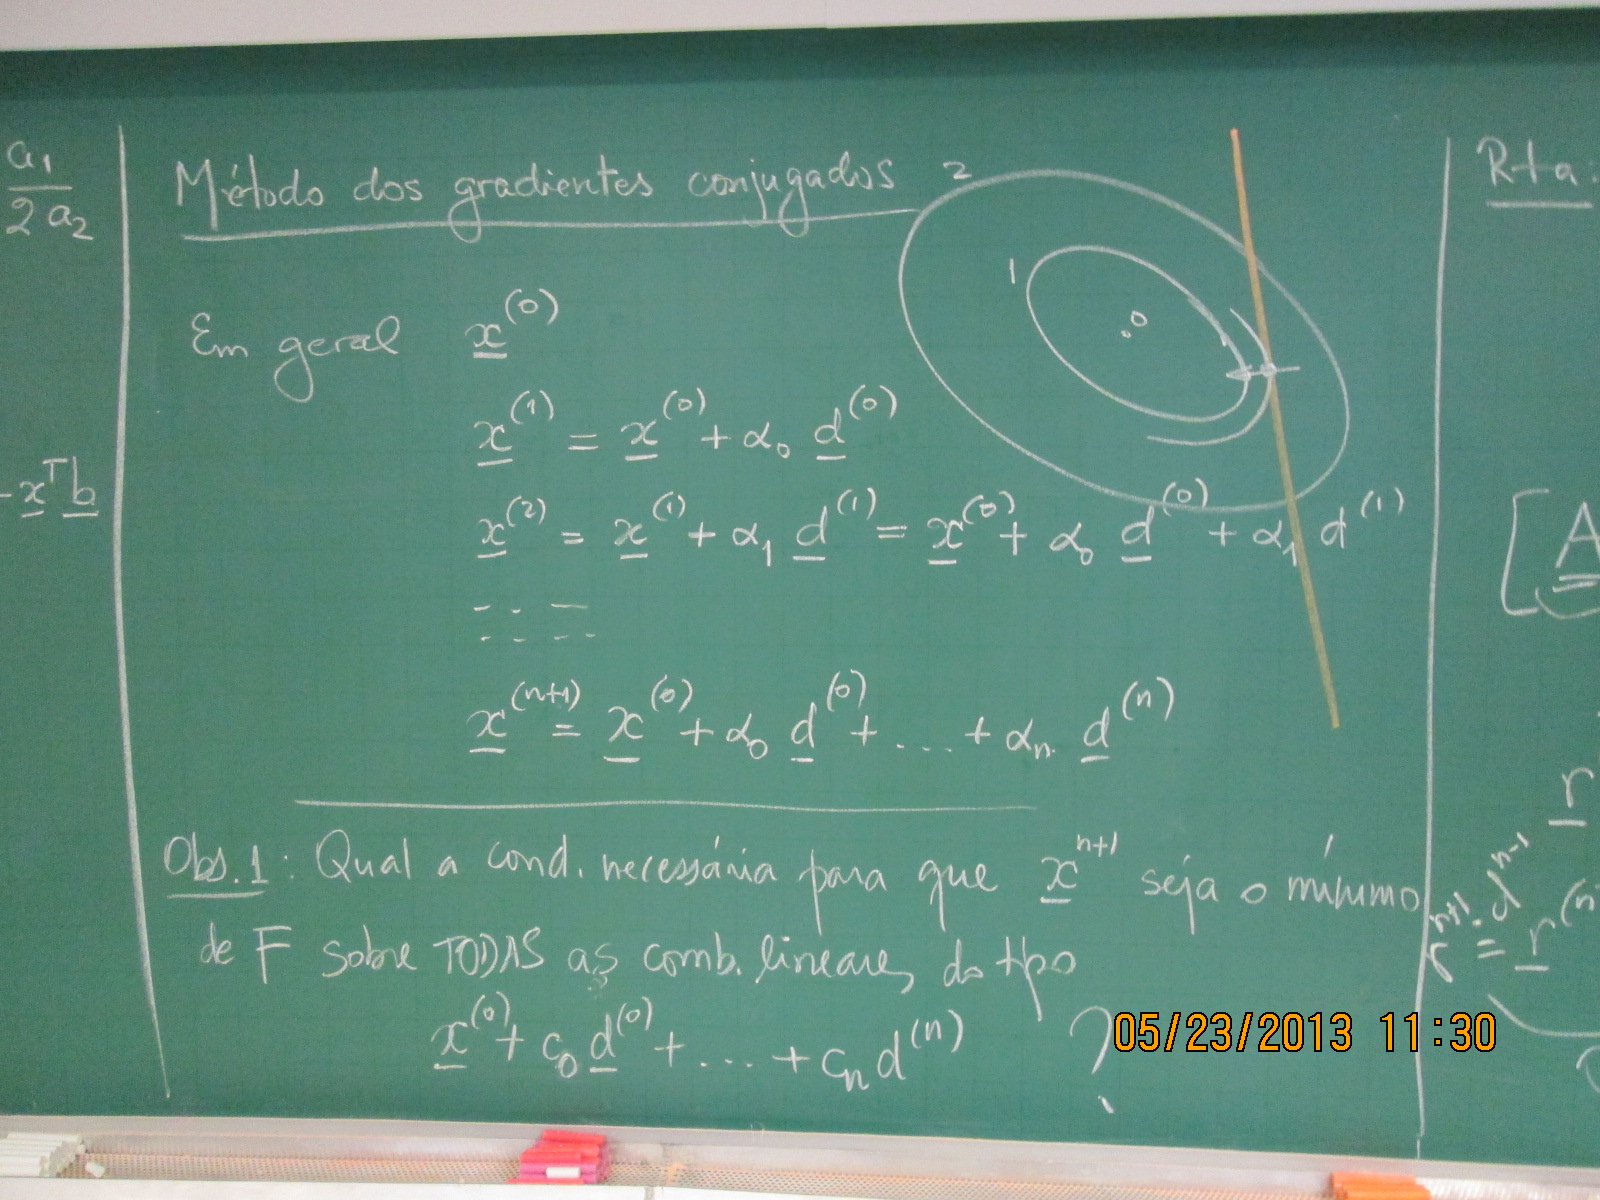 a₁
2 a₂
- x^T b
Método dos gradientes conjugados
2
1
0
Em geral x^(0)
x^(1) = x^(0) + α₀ d^(0)
x^(2) = x^(1) + α₁ d^(1) = x^(0) + α₀ d^(0) + α₁ d^(1)
x^(n+1) = x^(0) + α₀ d^(0) + ... + αₙ d^(n)
Obs. 1: Qual a cond. necessária para que x^n+1 seja o mínimo
de F sobre TODAS as comb. lineares do tipo
x^(0) + c₀ d^(0) + ... + cₙ d^(n) ?
Rta:
[A
r
r^n+1 . d^n-1
= r^(n
05/23/2013 11:30